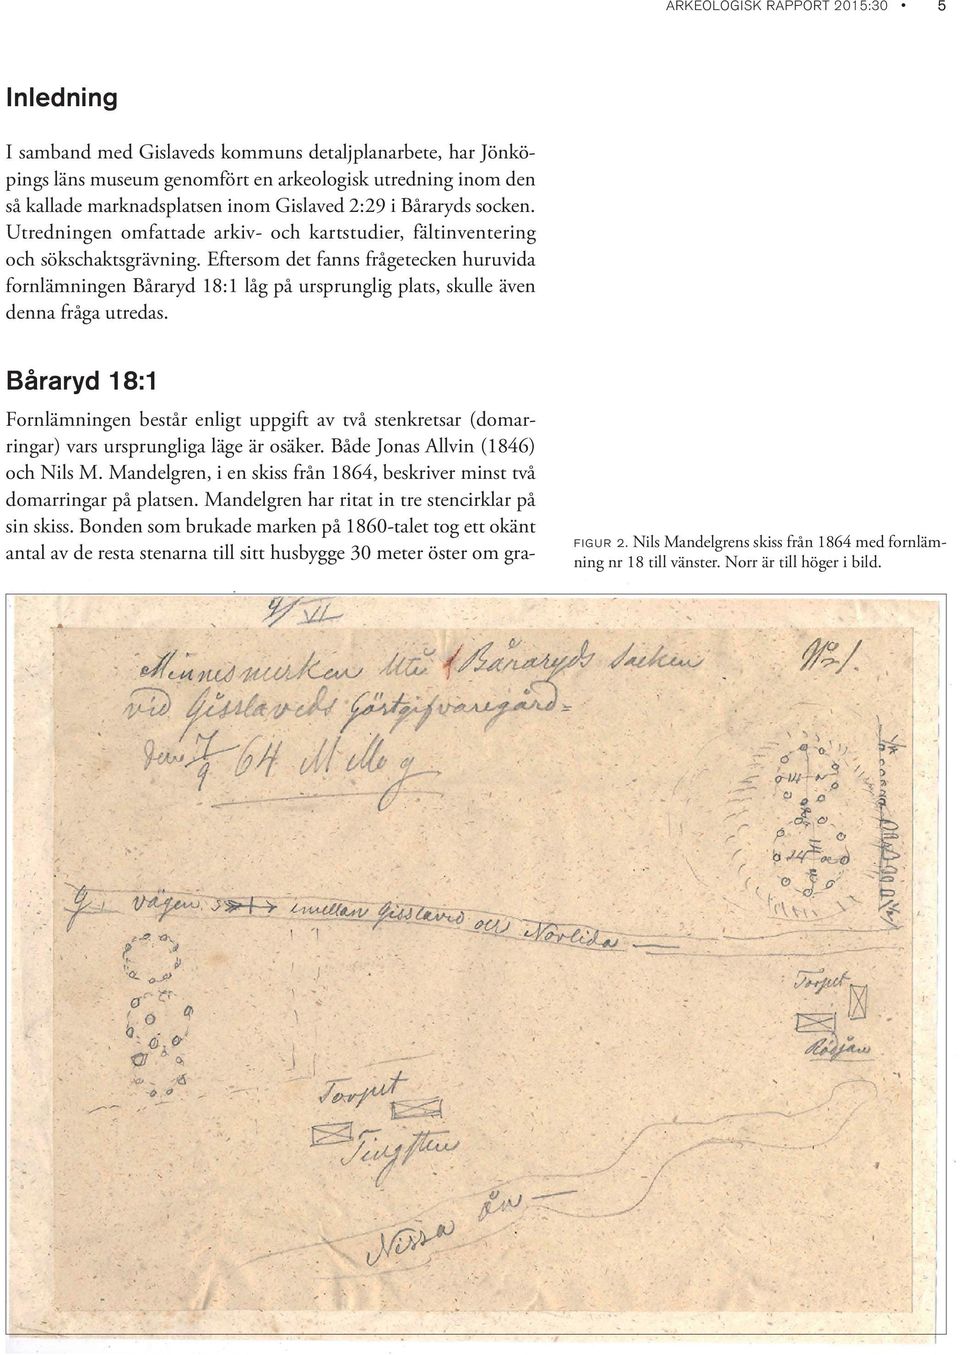 ARKEOLOGISK RAPPORT 2015:30 • 5
Inledning
I samband med Gislaveds kommuns detaljplanarbete, har Jönkö-
pings läns museum genomfört en arkeologisk utredning inom den
så kallade marknadsplatsen inom Gislaved 2:29 i Båraryds socken.
Utredningen omfattade arkiv- och kartstudier, fältinventering
och sökschaktsgrävning. Eftersom det fanns frågetecken huruvida
fornlämningen Båraryd 18:1 låg på ursprunglig plats, skulle även
denna fråga utredas.
Båraryd 18:1
Fornlämningen består enligt uppgift av två stenkretsar (domar-
ringar) vars ursprungliga läge är osäker. Både Jonas Allvin (1846)
och Nils M. Mandelgren, i en skiss från 1864, beskriver minst två
domarringar på platsen. Mandelgren har ritat in tre stencirklar på
sin skiss. Bonden som brukade marken på 1860-talet tog ett okänt
antal av de resta stenarna till sitt husbygge 30 meter öster om gra-
FIGUR 2. Nils Mandelgrens skiss från 1864 med fornläm-
ning nr 18 till vänster. Norr är till höger i bild.
9/VI
Minnesmerken Uti Båraryds Socken No 1.
vid Gisslaveds Gästgifvaregård=
den 7/9 64
14
14
vägen imellan Gisslaved och Norlida
Torpet
Rödjan
Torpet
Tingsten
Nissa ån